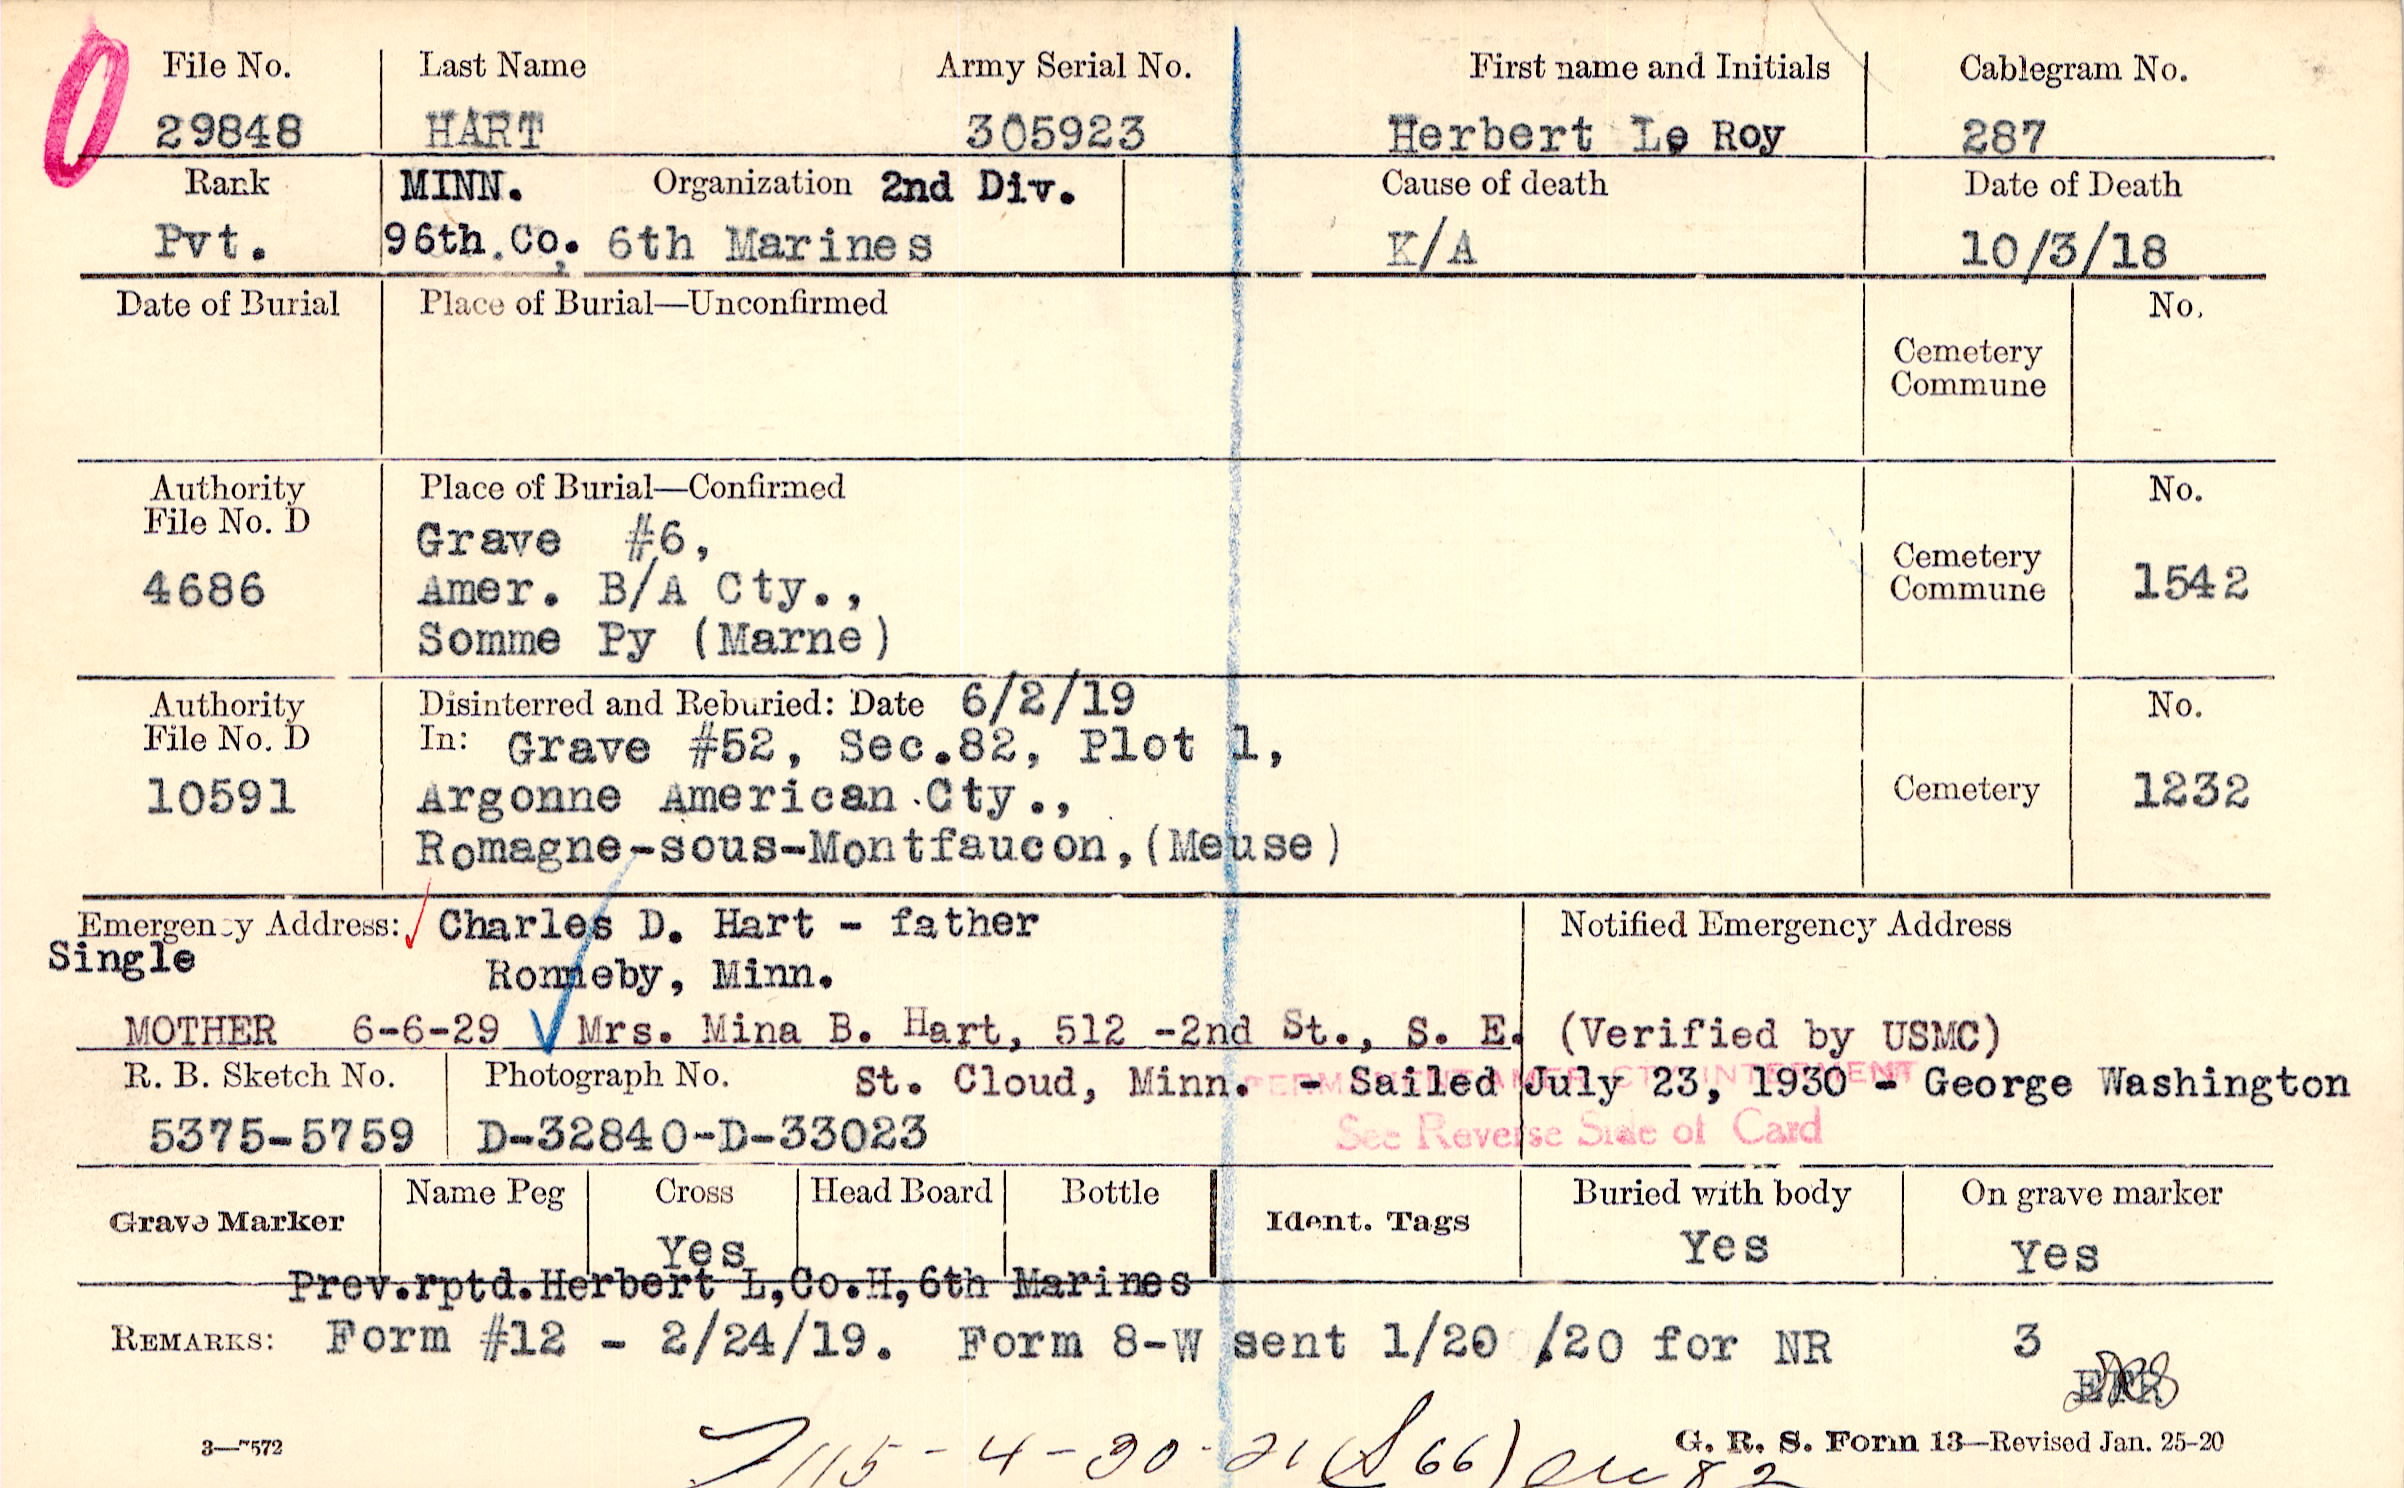 File No. Last Name Army Serial No. First name and Initials Cablegram No.
29848 HART 305923 Herbert Le Roy 287
Rank MINN. Organization 2nd Div. Cause of death Date of Death
Pvt. 96th.Co, 6th Marines K/A 10/3/18
Date of Burial Place of Burial—Unconfirmed No.
Cemetery
Commune
Authority Place of Burial—Confirmed No.
File No. D
Grave #6,
4686 Amer. B/A Cty., Cemetery Commune 1542
Somme Py (Marne)
Authority Disinterred and Reburied: Date 6/2/19 No.
File No. D In: Grave #52, Sec.82, Plot 1,
10591 Argonne American Cty., Cemetery 1232
Romagne-sous-Montfaucon,(Meuse)
Emergency Address: Charles D. Hart - father Notified Emergency Address
Single
Ronneby, Minn.
MOTHER 6-6-29 Mrs. Mina B. Hart, 512 -2nd St., S. E. (Verified by USMC)
R. B. Sketch No. Photograph No. St. Cloud, Minn. - Sailed July 23, 1930 - George Washington
5375-5759 D-32840-D-33023 See Reverse Side of Card
Grave Marker Name Peg Cross Head Board Bottle Ident. Tags Buried with body On grave marker
Yes Yes Yes
Prev.rptd.Herbert L,Co.H,6th Marines
REMARKS: Form #12 - 2/24/19. Form 8-W sent 1/20 /20 for NR 3
3—7572 G. R. S. Form 13—Revised Jan. 25-20
115-4-30-21 (S66)